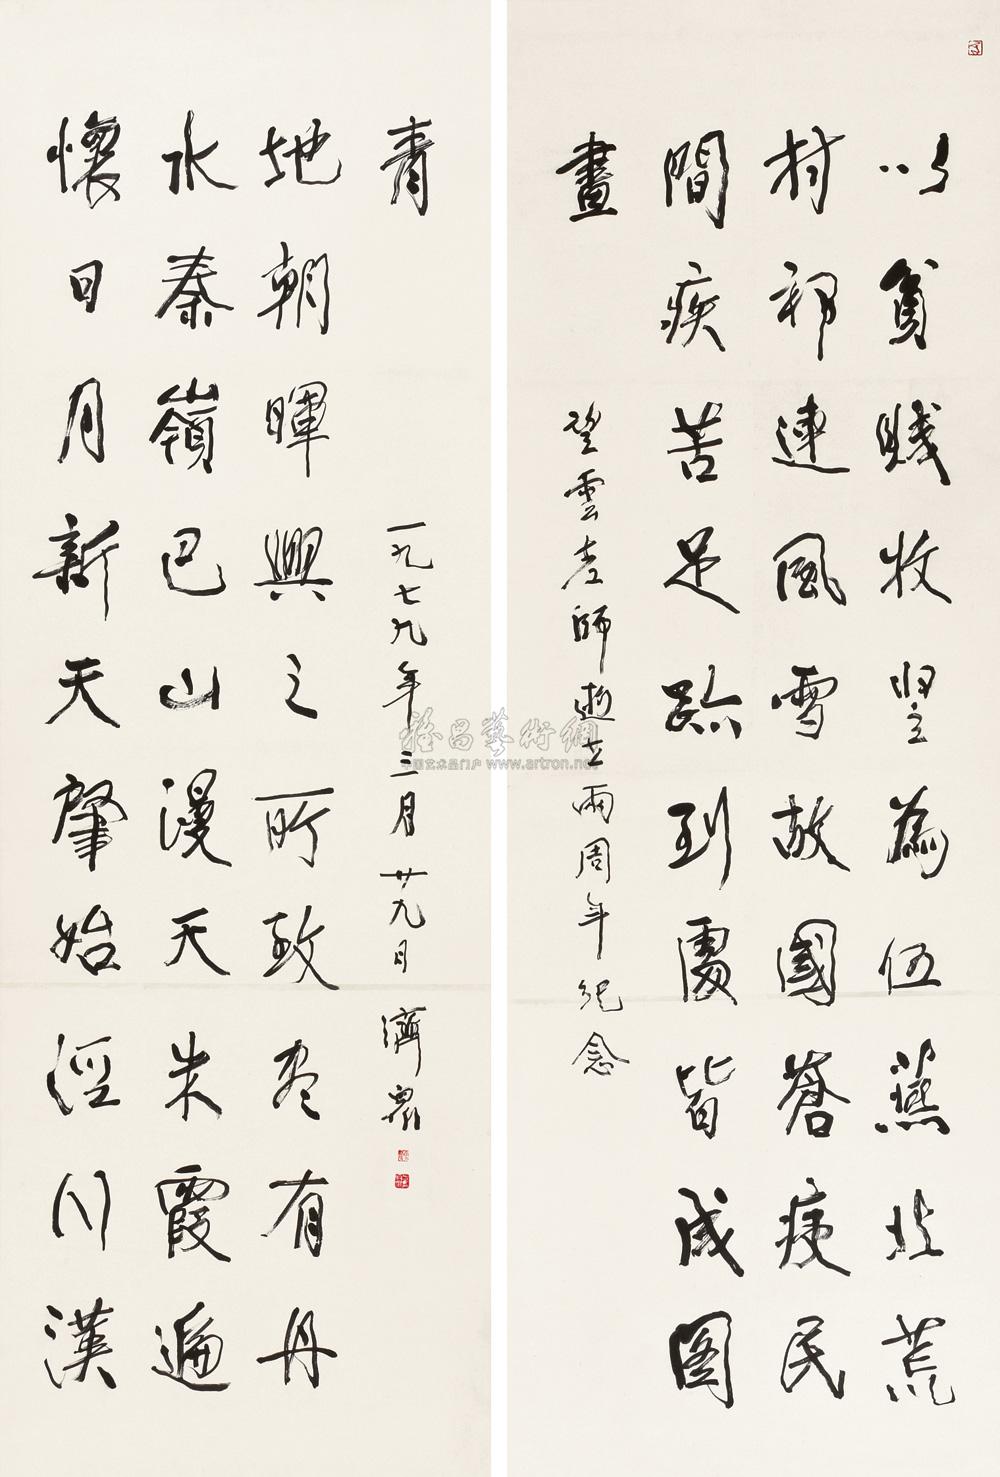 以貧賤牧豎為伍燕北荒
村祁連風雪故國蒼痍民
間疾苦足跡到處皆成圖
畫
望雲老師逝世兩周年紀念
懷日月新天肇始涇川漢
水秦嶺巴山漫天朱霞遍
地朝暉興之所致尽有丹
青
一九七九年三月廿九日 濟眾
雅昌藝術網
中国艺术品门户 www.artron.net